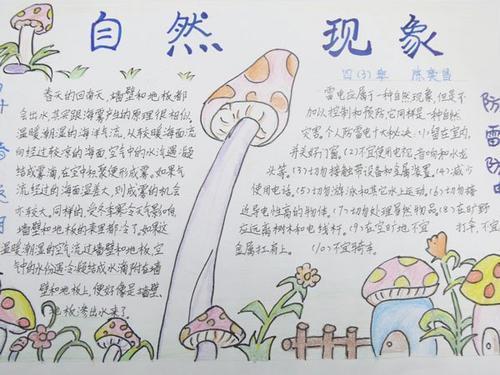 自然现象
四(3)班 陈奕昌
春天的回南天,墙壁和地板都
会出水,其实跟海雾产生的原理很相似,
温暖潮湿的海洋气流,从较暖海面流
向经过较凉的海面,空气中的水汽遇冷凝
结成雾滴,在空中积聚便形成雾。如果气
流经过的海面温差大,则成雾的机会
亦较大。同样的,受冬季寒冷天气影响
墙壁和地板的
温暖潮湿的空气流过墙壁和地板,空
气中的水份遇冷凝结成水滴附在墙
壁和地板上,便好像是墙壁、
地板渗出水来了。
雷电应属于一种自然现象,但是不
加以控制和预防,它同样是一种自然
灾害,个人防雷电十大秘诀:(1)留在室内,
并关好门窗。(2)不宜使用电视、音响和水
龙头等。(3)切勿接触带设备和金属
使用电话。(5)切勿游泳和其它水上运动。(6)切勿接
近导电性高的物体。(7)切勿处理易燃物品。(8)在旷野
应远离树木和电线杆。(9)在空旷地不宜打伞,不宜
金属扛肩上。(10)不宜骑车。
防雷防